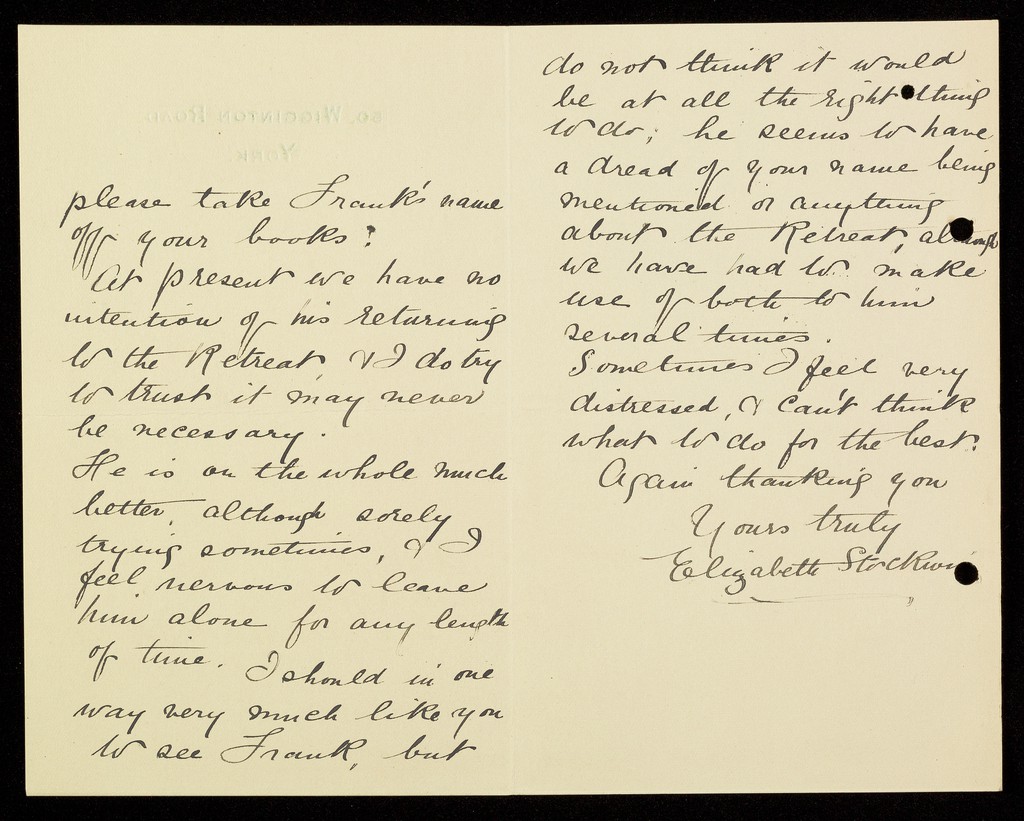 please take Frank's name
off your books?
At present we have no
intention of his returning
to the Retreat & I do try
to trust it may never
be necessary.
He is on the whole much
better, although sorely
trying sometimes, & I
feel nervous to leave
him alone for any length
of time. I should in one
way very much like you
to see Frank, but
do not think it would
be at all the right thing
to do; he seems to have
a dread of your name being
mentioned or anything
about the Retreat, although
we have had to make
use of both to him
several times.
Sometimes I feel very
distressed, & can't think
what to do for the best.
Again thanking you
Yours truly
Elizabeth